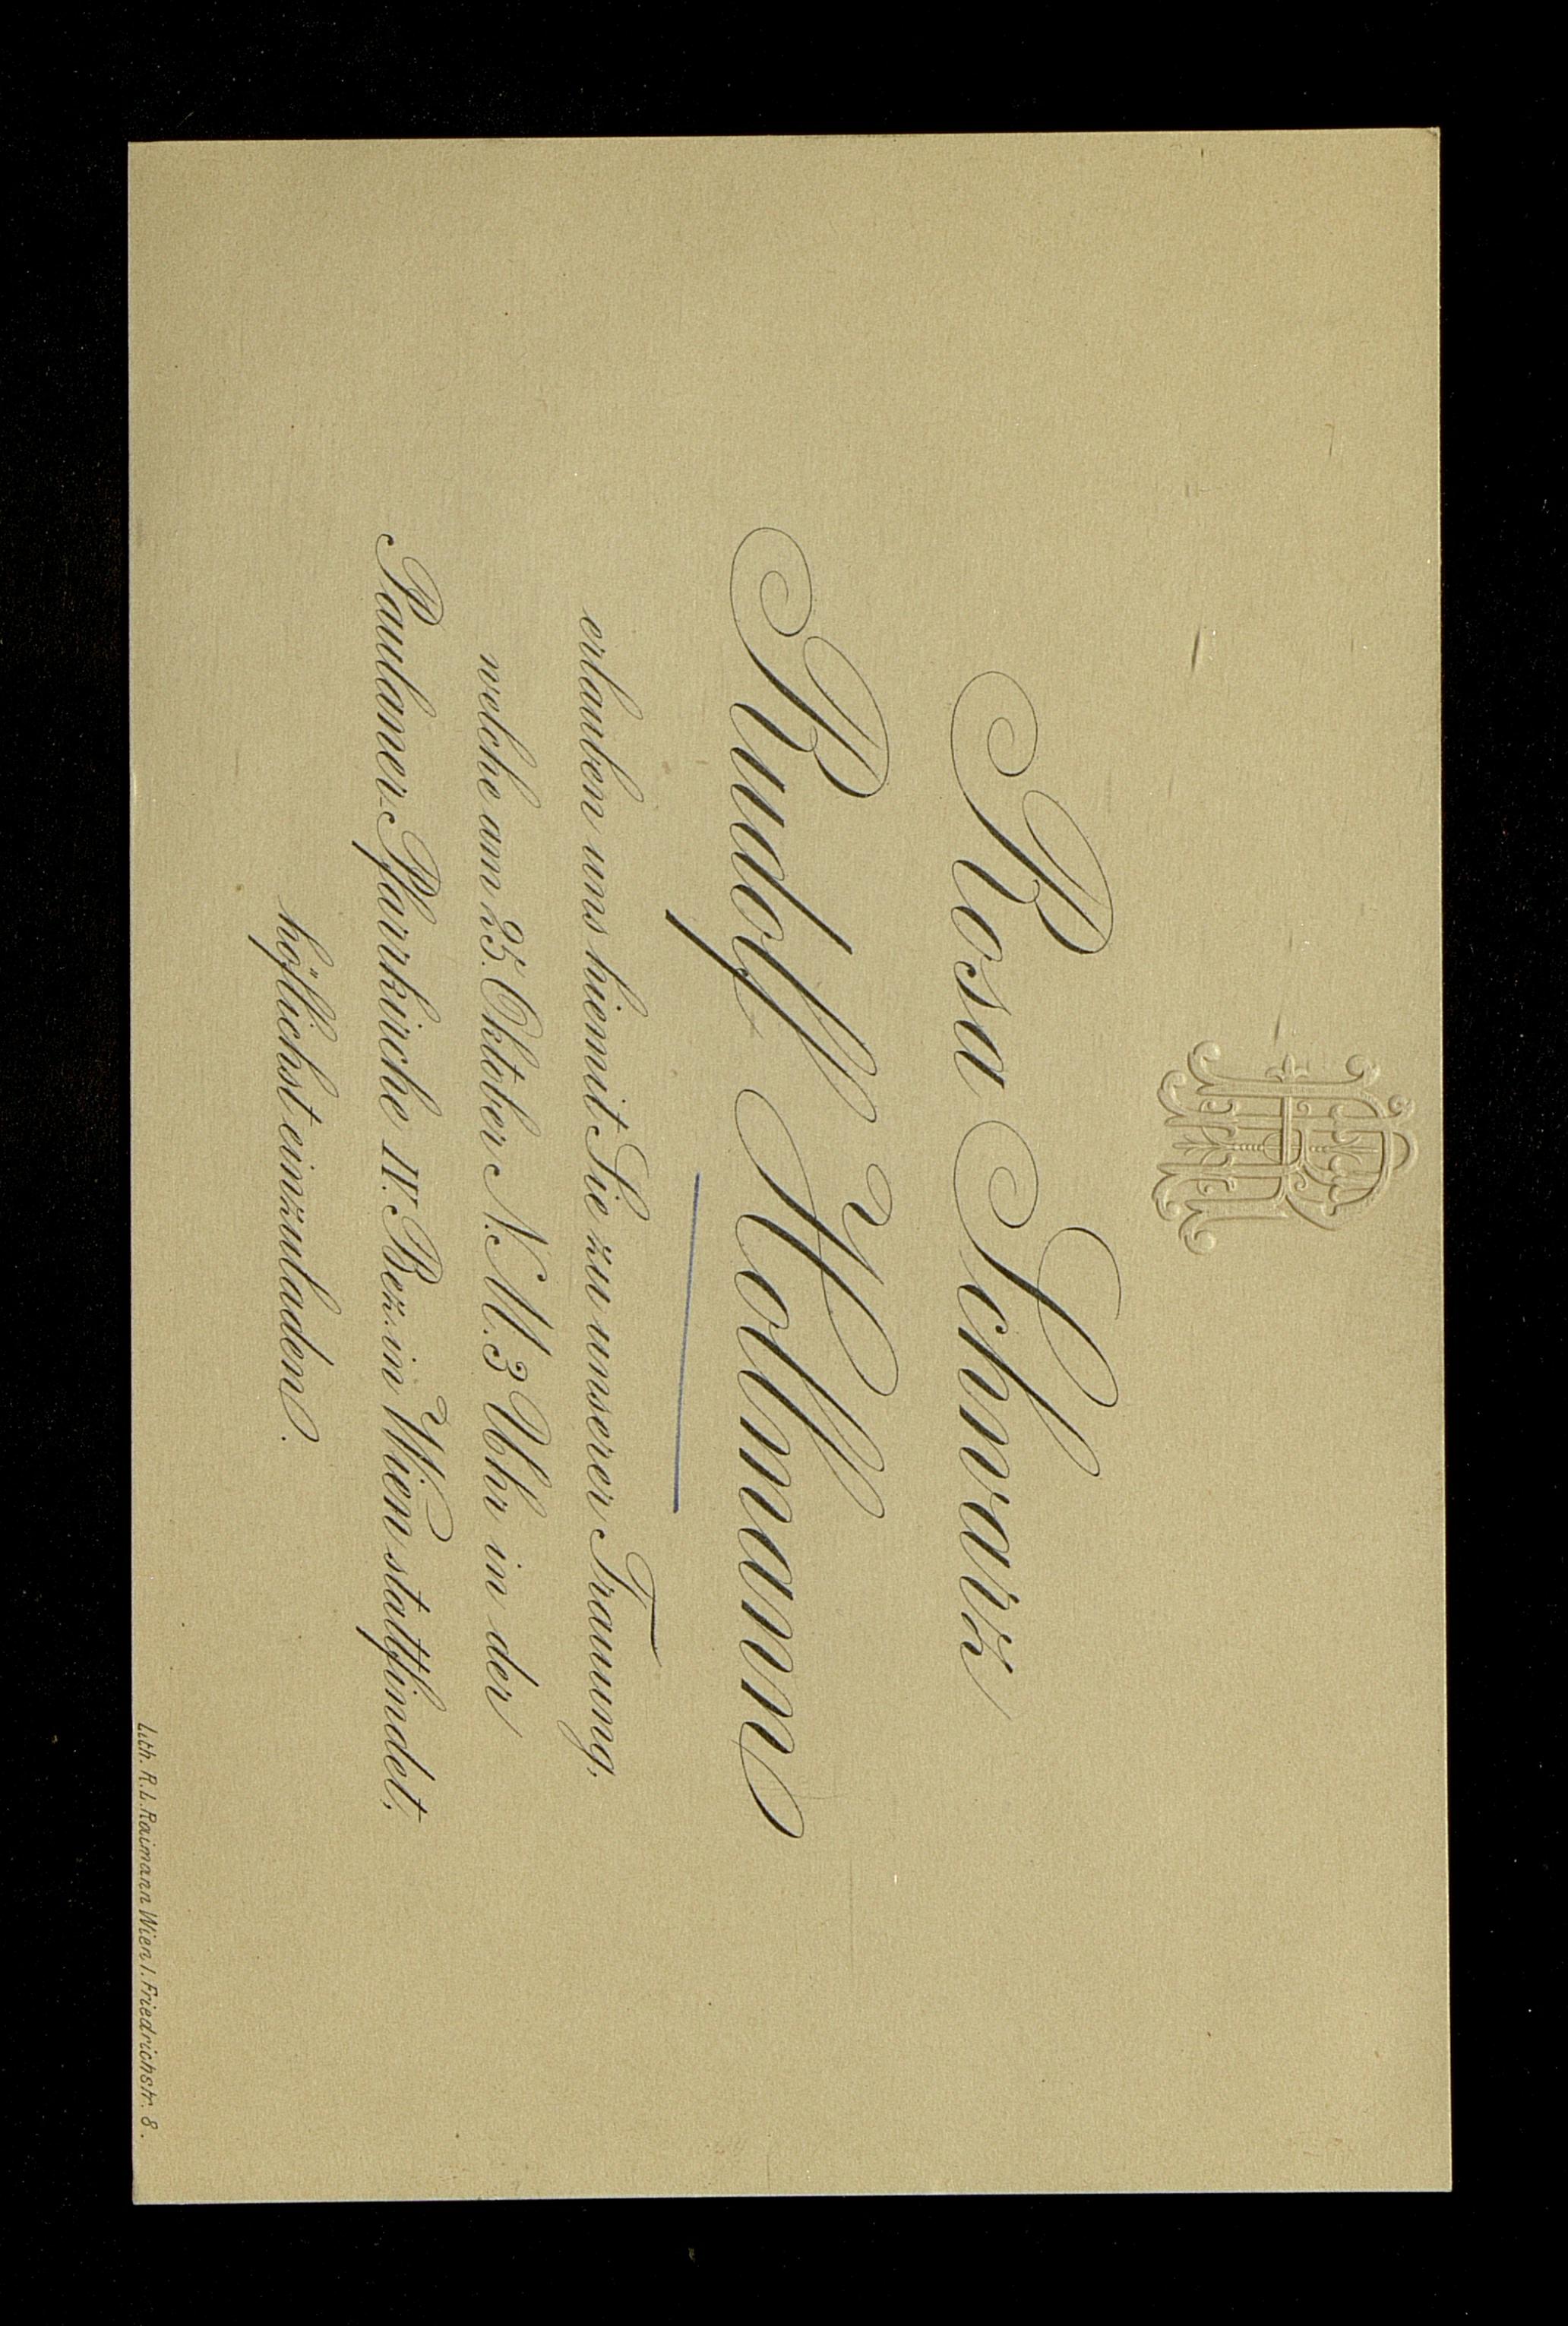 Rosa Schwarz
Rudolf Hollmann
erlauben uns hiemit Sie zu unserer Trauung,
welche am 25. Oktober N. M. 3 Uhr in der
Paulaner-Pfarrkirche IV. Bez. in Wien stattfindet,
höflichst einzuladen.
Lith. R. L. Raimann Wien I. Friedrichstr. 8.